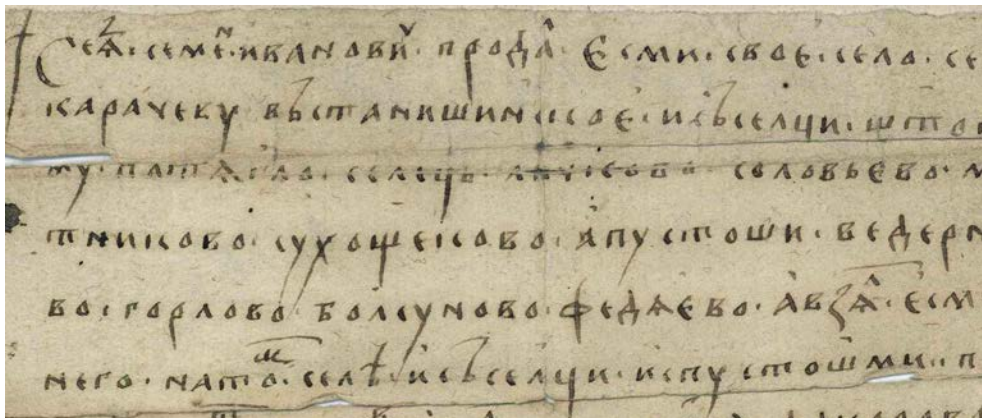 Се ꙗз семен иванович продал есми свое село се
карачеву въстанишинское и съ селци што
му потѧгло селець соловьево
тниково сухощеково а пустоши ведерн
во горлово болсуново федѧево а взѧл есм
него на том селѣ и съ селци и с пустошми п